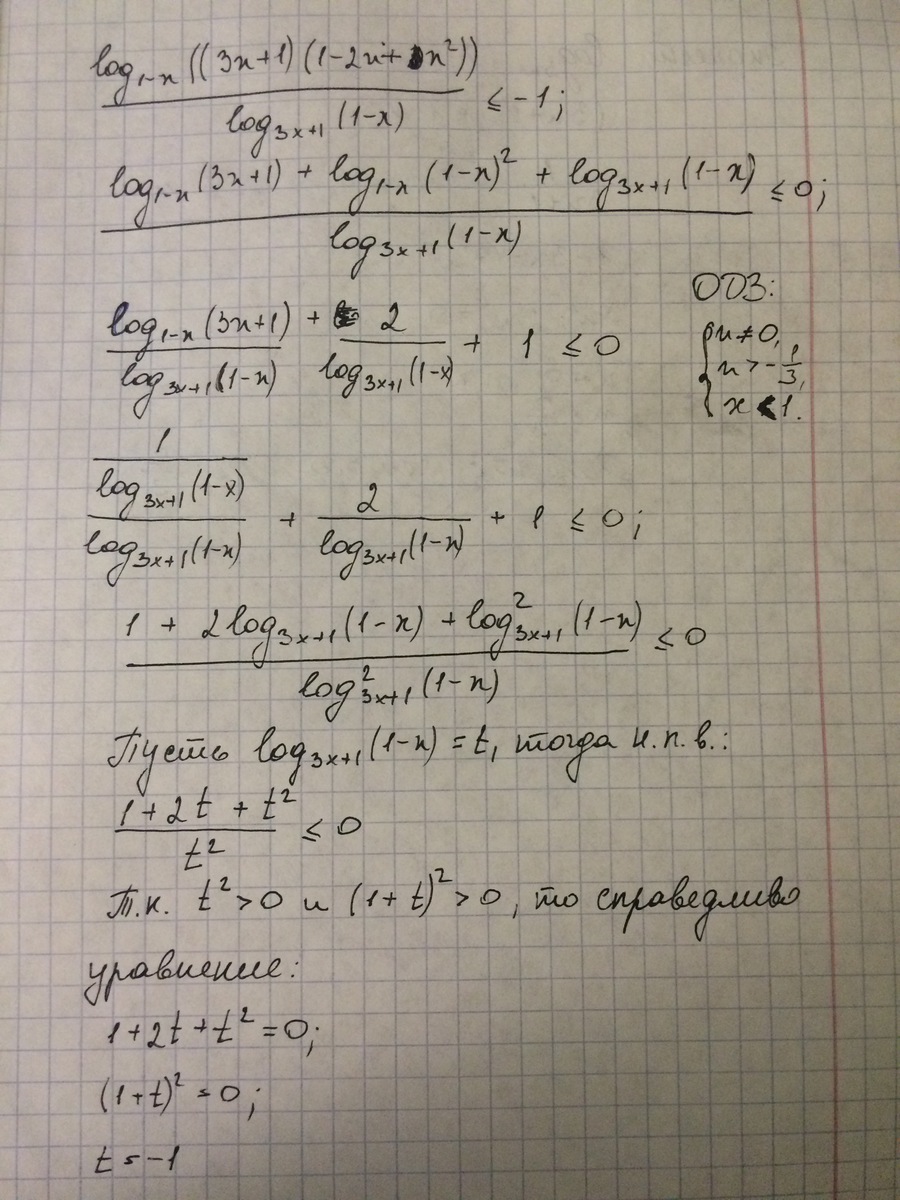 log₁₋ₓ((3x+1)(1-2x+x²)) / log₃ₓ₊₁(1-x) ≤ -1;
(log₁₋ₓ(3x+1) + log₁₋ₓ(1-x)² + log₃ₓ₊₁(1-x)) / log₃ₓ₊₁(1-x) ≤ 0;
ОДЗ:
x ≠ 0,
x > -1/3,
x < 1.
log₁₋ₓ(3x+1) / log₃ₓ₊₁(1-x) + 2 / log₃ₓ₊₁(1-x) + 1 ≤ 0
(1 / log₃ₓ₊₁(1-x)) / log₃ₓ₊₁(1-x) + 2 / log₃ₓ₊₁(1-x) + 1 ≤ 0;
(1 + 2log₃ₓ₊₁(1-x) + log²₃ₓ₊₁(1-x)) / log²₃ₓ₊₁(1-x) ≤ 0
Пусть log₃ₓ₊₁(1-x) = t, тогда н.п.в.:
(1+2t+t²) / t² ≤ 0
Т.к. t² > 0 и (1+t)² > 0, то справедливо
уравнение:
1+2t+t² = 0;
(1+t)² = 0;
t = -1